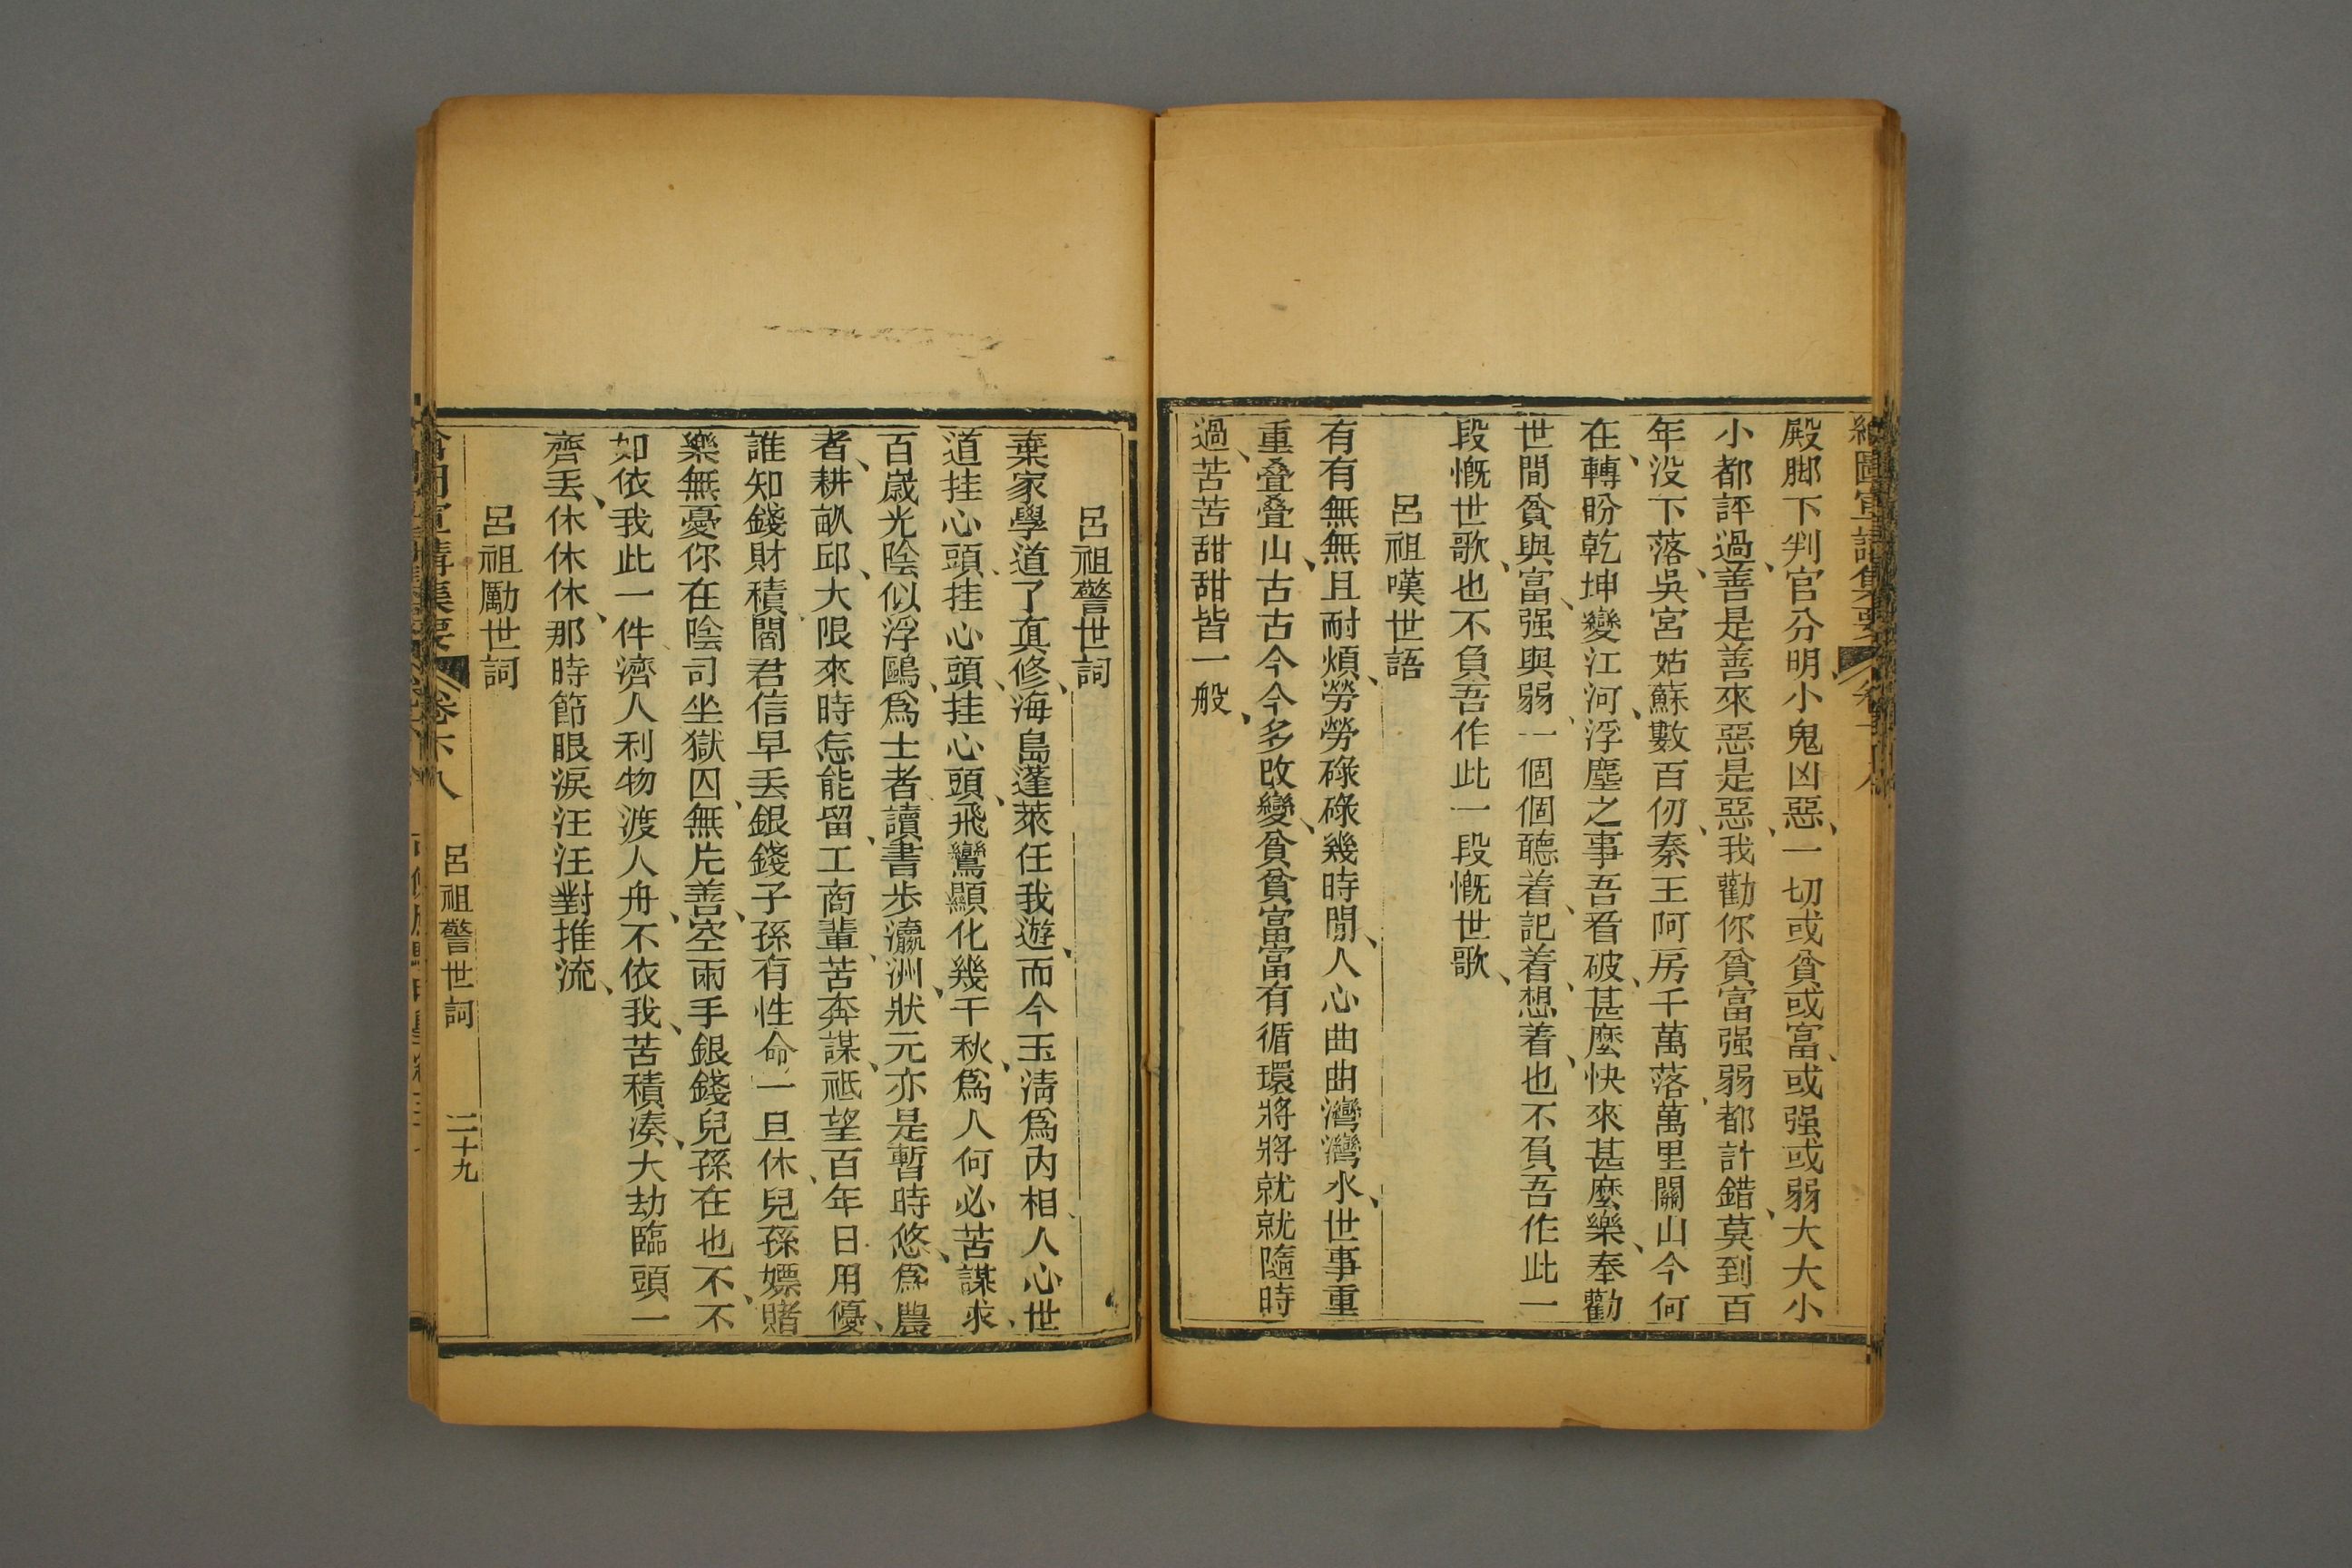 殿脚下判官分明、小鬼凶惡、一切或貧或富、或强或弱大大小
小都評過、善是善來惡是惡、我勸你貧富强弱都計錯、莫到百
年没下落、吳宮姑蘇數百仞、秦王阿房千萬落、萬里關山今何
在、轉盼乾坤變江河、浮塵之事吾看破、甚麼快來甚麼樂、奉勸
世間貧與富、强與弱、一個個聽着、記着、想着、也不負吾作此一
段慨世歌、也不負吾作此一段慨世歌、
呂祖嘆世語
有有無無且耐煩、勞勞碌碌幾時閒、人心曲曲灣灣水、世事重
重叠叠山、古古今今多改變、貧貧富富有循環將將就就隨時
過、苦苦甜甜皆一般、
呂祖警世詞
棄家學道了真修、海島蓬萊任我遊、而今玉淸爲內相、人心世
道挂心頭、挂心頭、挂心頭、飛鸞顯化幾千秋、爲人何必苦謀求、
百歲光陰似浮鷗、爲士者讀書步瀛洲、狀元亦是暫時悠、爲農
者、耕畝邱、大限來時怎能留、工商輩、苦奔謀、祗望百年日用優、
誰知錢財積、閻君信早丢銀錢子孫有性命一旦休、兒孫嫖賭
樂無憂你在陰司坐獄囚、無片善、空兩手銀錢兒孫在也不、不
如依我此一件濟人利物渡人舟、不依我、苦積湊、大劫臨頭一
齊丢、休休休、那時節眼淚汪汪對推流、
呂祖勵世詞
宣講集要 卷下八 呂祖警世詞 二十九